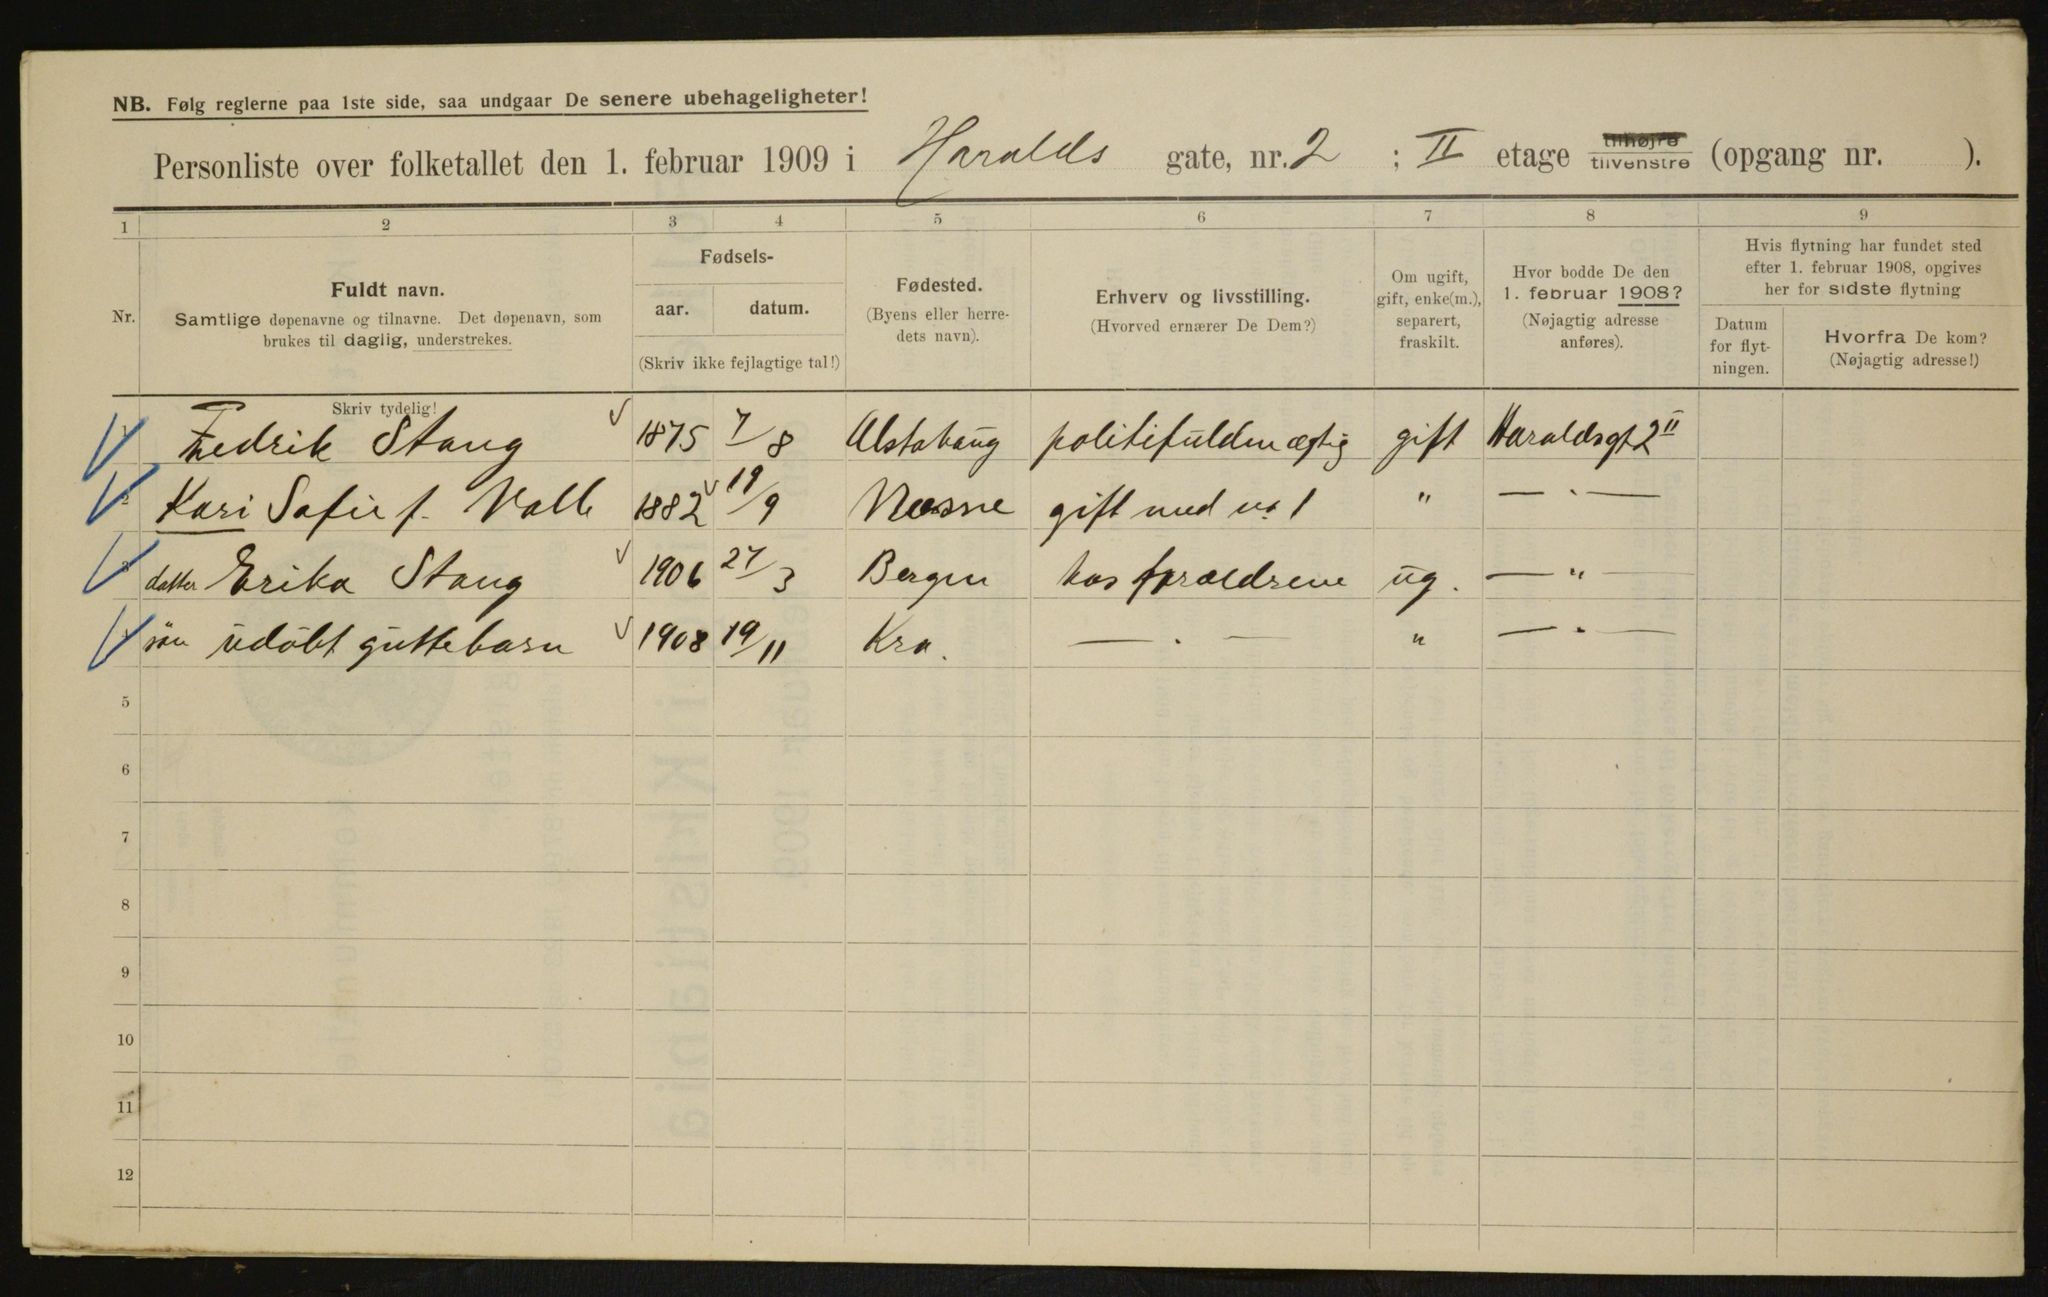 NB. Følg reglerne paa 1ste side, saa undgaar De senere ubehageligheter!
Personliste over folketallet den 1. februar 1909 i Haralds gate, nr. 2 ; II etage tilhøjre tilvenstre (opgang nr. ).
1 2 3 4 5 6 7 8 9
Nr.
Fuldt navn.
Samtlige døpenavne og tilnavne. Det døpenavn, som
brukes til daglig, understrekes.
Fødsels-
aar. datum.
(Skriv ikke fejlagtige tal!)
Fødested.
(Byens eller herre-
dets navn).
Erhverv og livsstilling.
(Hvorved ernærer De Dem?)
Om ugift,
gift, enke(m.),
separert,
fraskilt.
Hvor bodde De den
1. februar 1908?
(Nøjagtig adresse
anføres).
Hvis flytning har fundet sted
efter 1. februar 1908, opgives
her for sidste flytning
Datum
for flyt-
ningen.
Hvorfra De kom?
(Nøjagtig adresse!)
Skriv tydelig!
1 Fredrik Stang 1875 7/8 Alstahaug politifuldmægtig gift Haraldsgt 2 II
2 Kari Sofie f. 1882 19/9 gift med no 1 " — " —
3 datter Erika Stang 1906 27/3 Bergen hos forældrene ug. — " —
4 søn udöbt guttebarn 1908 19/11 Kra. — " — " — " —
5
6
7
8
9
10
11
12